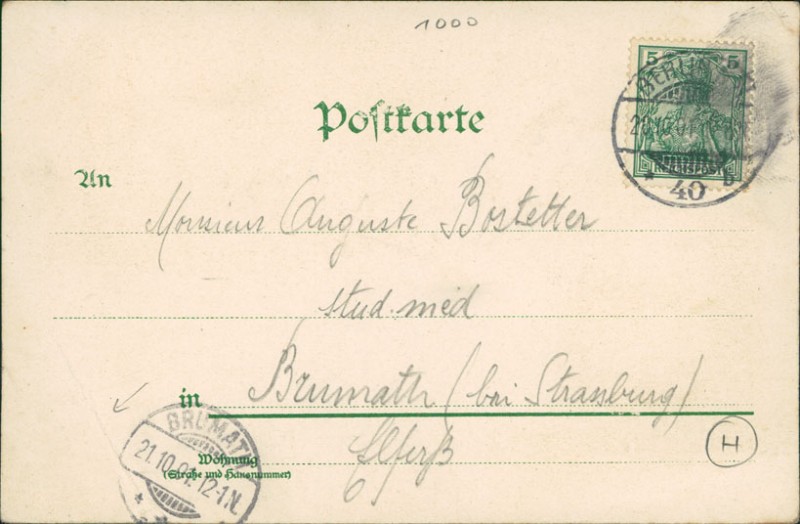 1000
5 5
BERLIN
20.10.01
REICHSPOST
* 40 b
Postkarte
An
Monsieur Auguste Bostetter
stud. med
in Brumath (bei Strassburg)
Elsaß
H
BRUMATH
21.10.01.12-1N.
Wohnung
(Straße und Hausnummer)